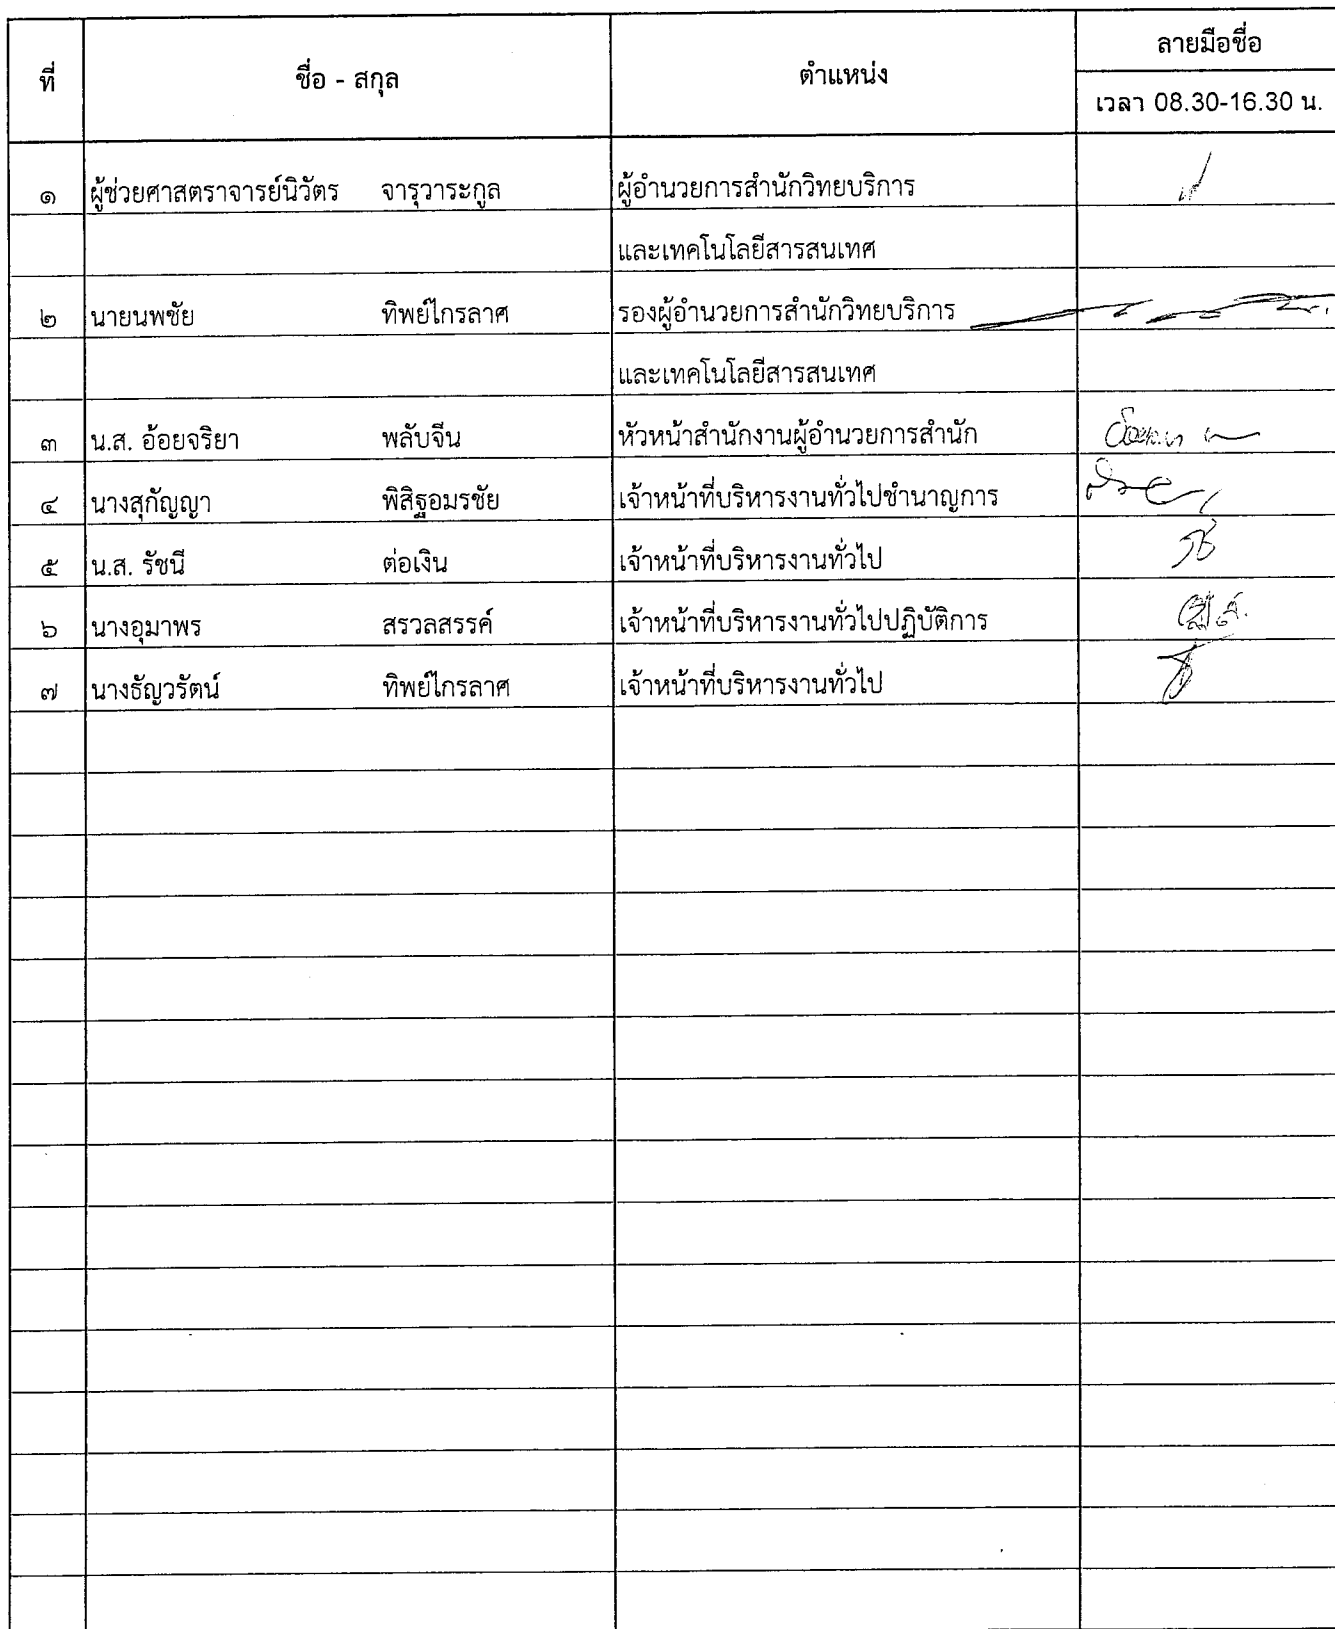 ที่ ชื่อ - สกุล ตำแหน่ง ลายมือชื่อ
เวลา 08.30-16.30 น.
๑ ผู้ช่วยศาสตราจารย์นิวัตร จารุวาระกูล ผู้อำนวยการสำนักวิทยบริการ
และเทคโนโลยีสารสนเทศ
๒ นายนพชัย ทิพย์ไกรลาศ รองผู้อำนวยการสำนักวิทยบริการ
และเทคโนโลยีสารสนเทศ
๓ น.ส. อ้อยจริยา พลับจีน หัวหน้าสำนักงานผู้อำนวยการสำนัก
๔ นางสุกัญญา พิสิฐอมรชัย เจ้าหน้าที่บริหารงานทั่วไปชำนาญการ
๕ น.ส. รัชนี ต่อเงิน เจ้าหน้าที่บริหารงานทั่วไป
๖ นางอุมาพร สรวลสรรค์ เจ้าหน้าที่บริหารงานทั่วไปปฏิบัติการ
๗ นางธัญวรัตน์ ทิพย์ไกรลาศ เจ้าหน้าที่บริหารงานทั่วไป